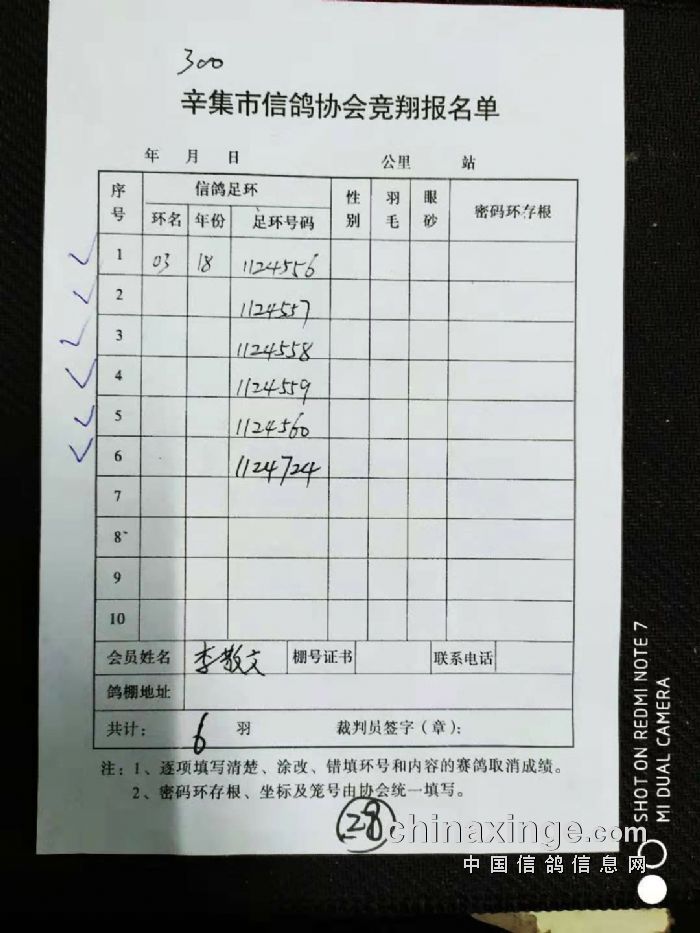 300
辛集市信鸽协会竞翔报名单
年 月 日 公里 站
序号 信鸽足环 性别 羽毛 眼砂 密码环存根
环名 年份 足环号码
1 03 18 1124556
2 1124557
3 1124558
4 1124559
5 1124560
6 1124724
7
8
9
10
会员姓名 李敬文 棚号证书 联系电话
鸽棚地址
共计: 6 羽 裁判员签字(章):
注:1、逐项填写清楚、涂改、错填环号和内容的赛鸽取消成绩。
2、密码环存根、坐标及笼号由协会统一填写。
28
chinaxinge.com
中国信鸽信息网
SHOT ON REDMI NOTE 7
MI DUAL CAMERA